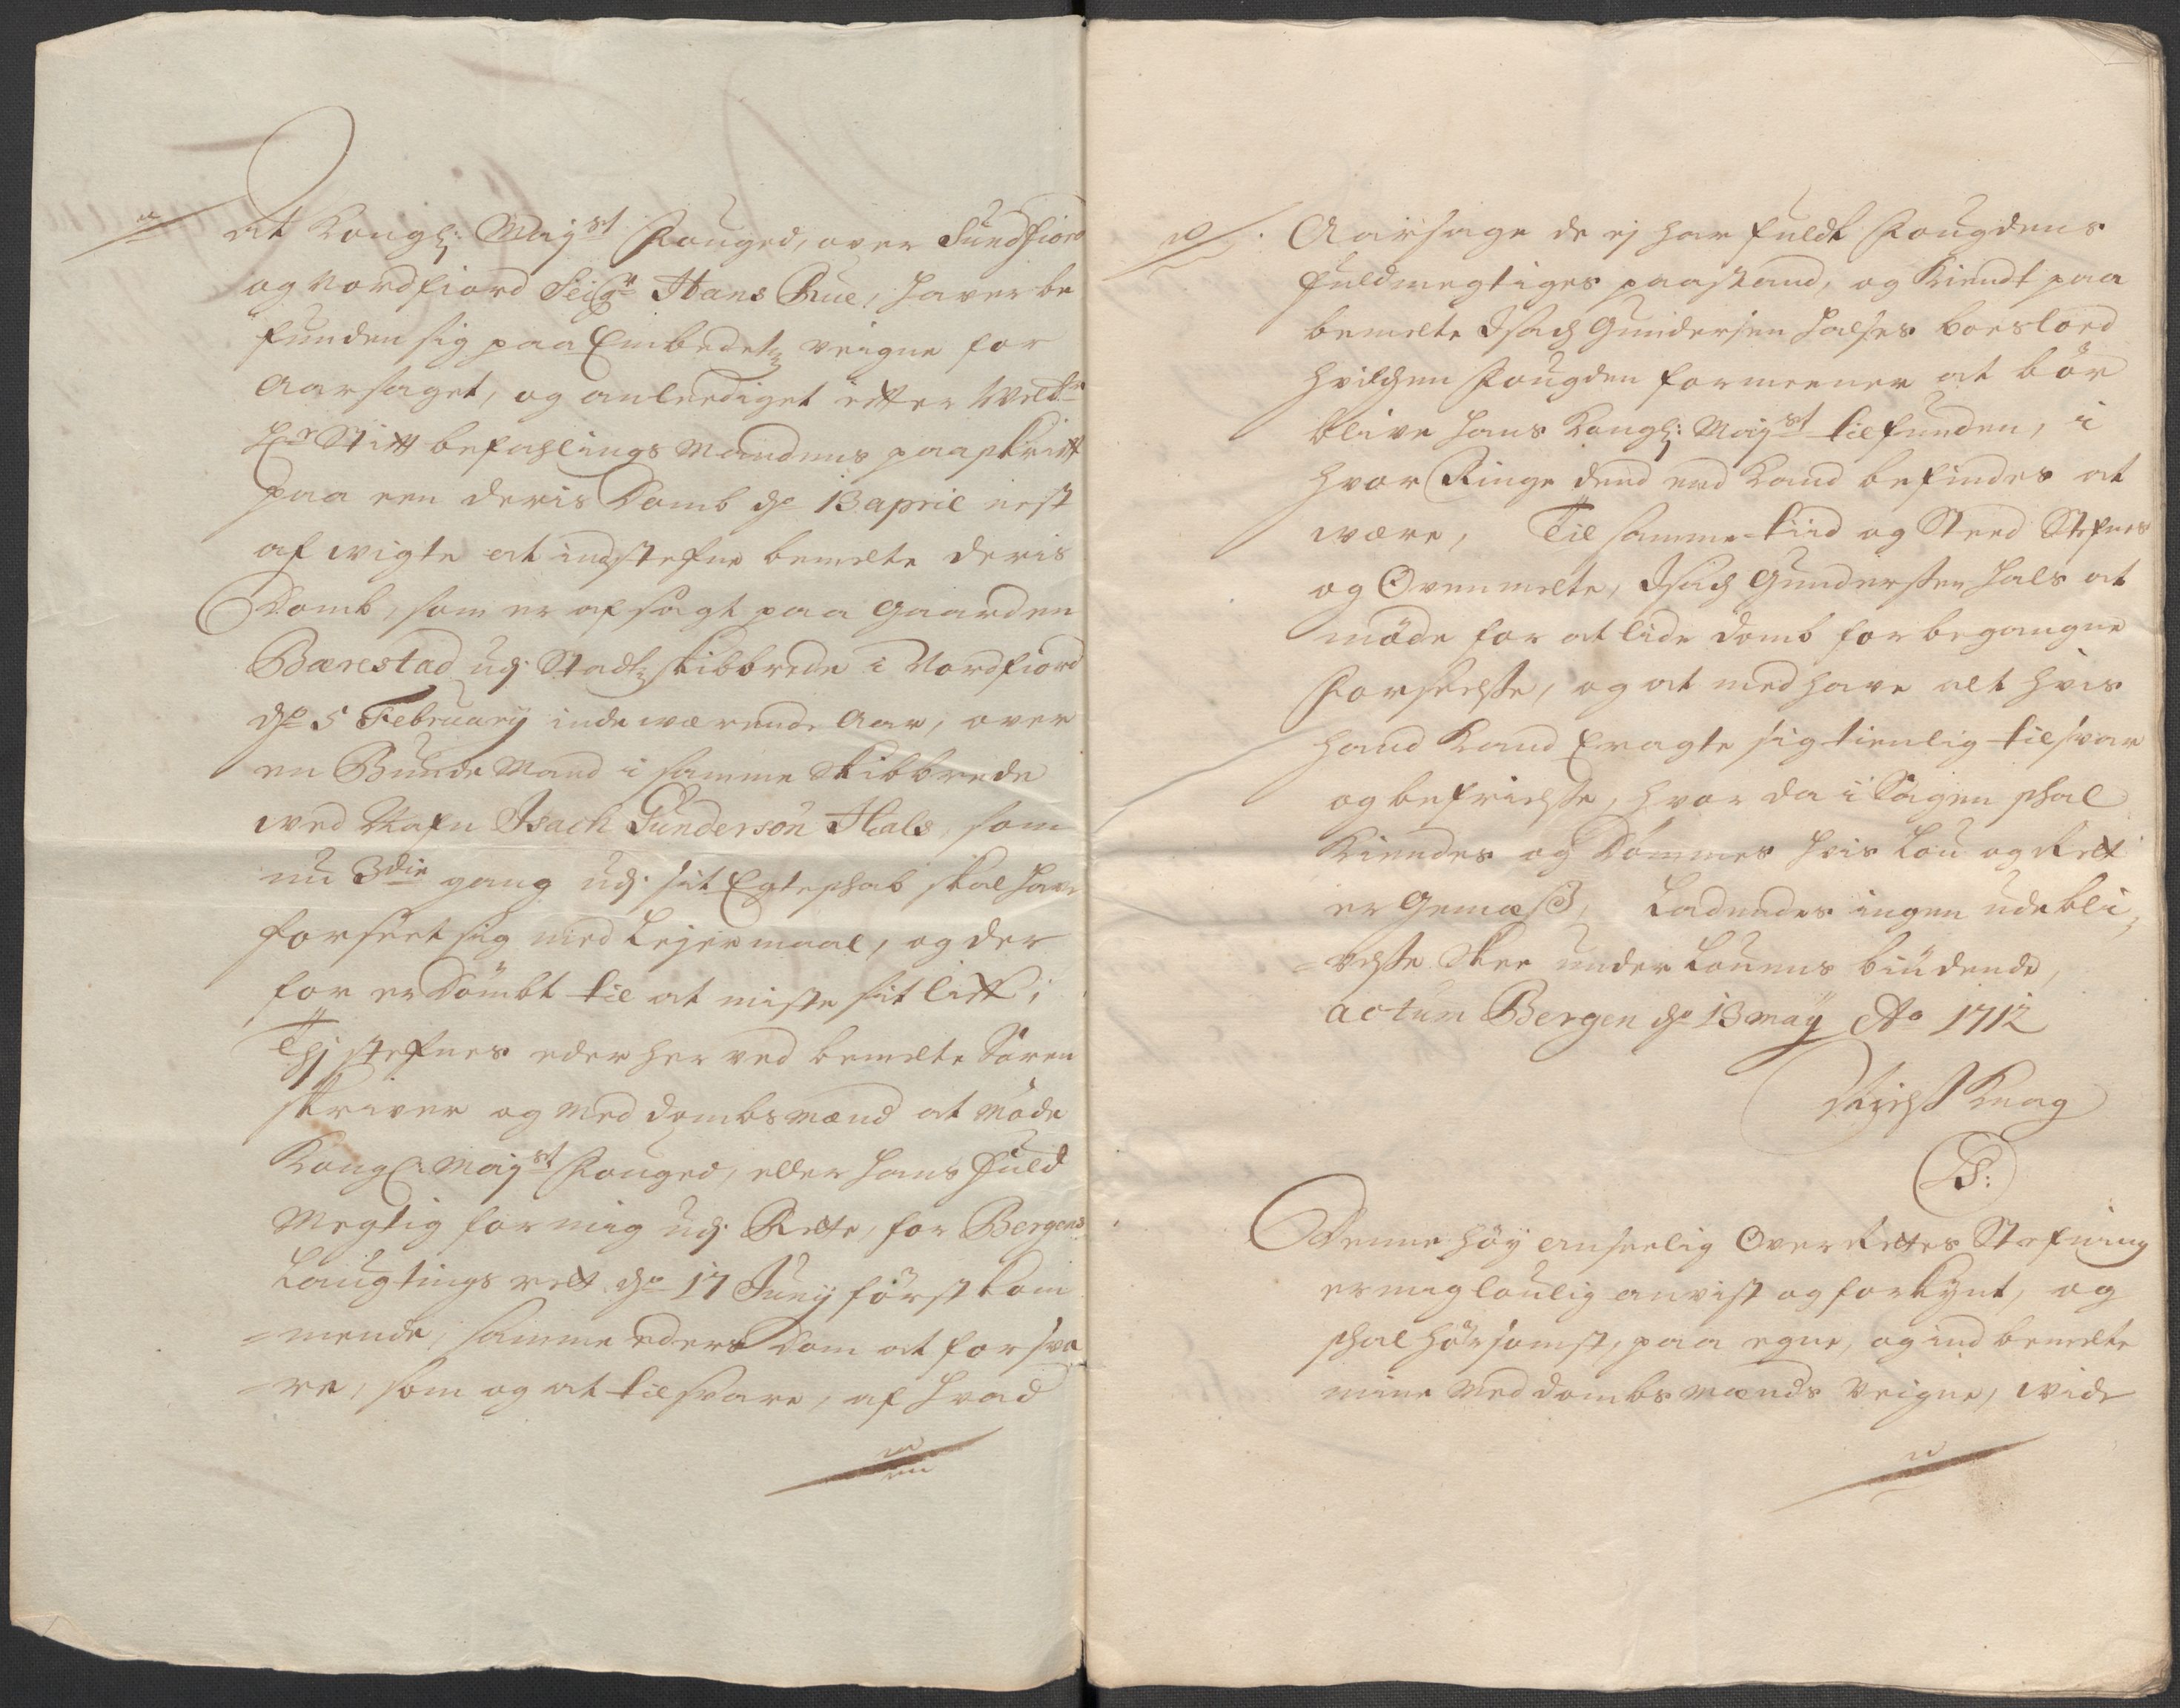 At Kongl: Mayst Fouged, over Sundfiord
og Nordfiord Seigr Hans Rue, haver be
funden sig paa Embedetz veigne for
aarsaget, og anleediget efter Welbr
Hr Stift befahlings Mandens paaskrift
paa een deris Domb do 13 april nest
afwigte at indstefne bemelte deris
Domb, som er afsagt paa gaarden
Bærestad udj Stadtz skibbrede i Nordfiord
do 5 February inde wærende Aar, over
en Bunde Mand i samme Skibbrede
wed Nafn Isach Gunderson Hals, som
nu 3die gang udj sit Egteschab skal have
forseet sig med Lejermaal, og der
for er Dömbt til at miste sit lif;
Thj stefnes eder her ved bemelte Soren
skriver og Meddombsmænd at Möde
Kongl Mayst Fouged, eller hans Fuld
Megtig for mig udj Rette, for Bergens
Laugtings rett do 17 Juny först kom
-mende, samme eders dom at forsva
-re, som og at tilsvare, af hvad
Aarsage de ej har fuldt Fougdens
fuldmegtiges paastand, og Kiendt paa
bemelte Isach Gundersen Halses boeslod
hvilchen Fougden formeener at bör
blive hans Kongl: Mayst tilfunden, i
hvor Ringe dend end Kand befindes at
være, Til samme tiid og Sted Stefnes
og Ovenmelte, Isach Gundersen Hals at
möde for at lide domb for begangne
Forseelsse, og at medhave alt hvis
hand Kand Eragte sig tienlig til svar
og befrielsse, hvor da i Sagen schal
Kiendes og Dömmes hvis Lou og Rett
er Gemæss, Ladendes ingen udebli,
-velsse skee under Louens biudende,
actum Bergen do 13 may Ao 1712
Knag
LS:
Denne höy anseelig Over Rettes Stefning
er mig loulig anvist og forkynt, og
schal hörsomst, paa egne, og ind bemelte
mine Meddombsmænds Veigne, wide